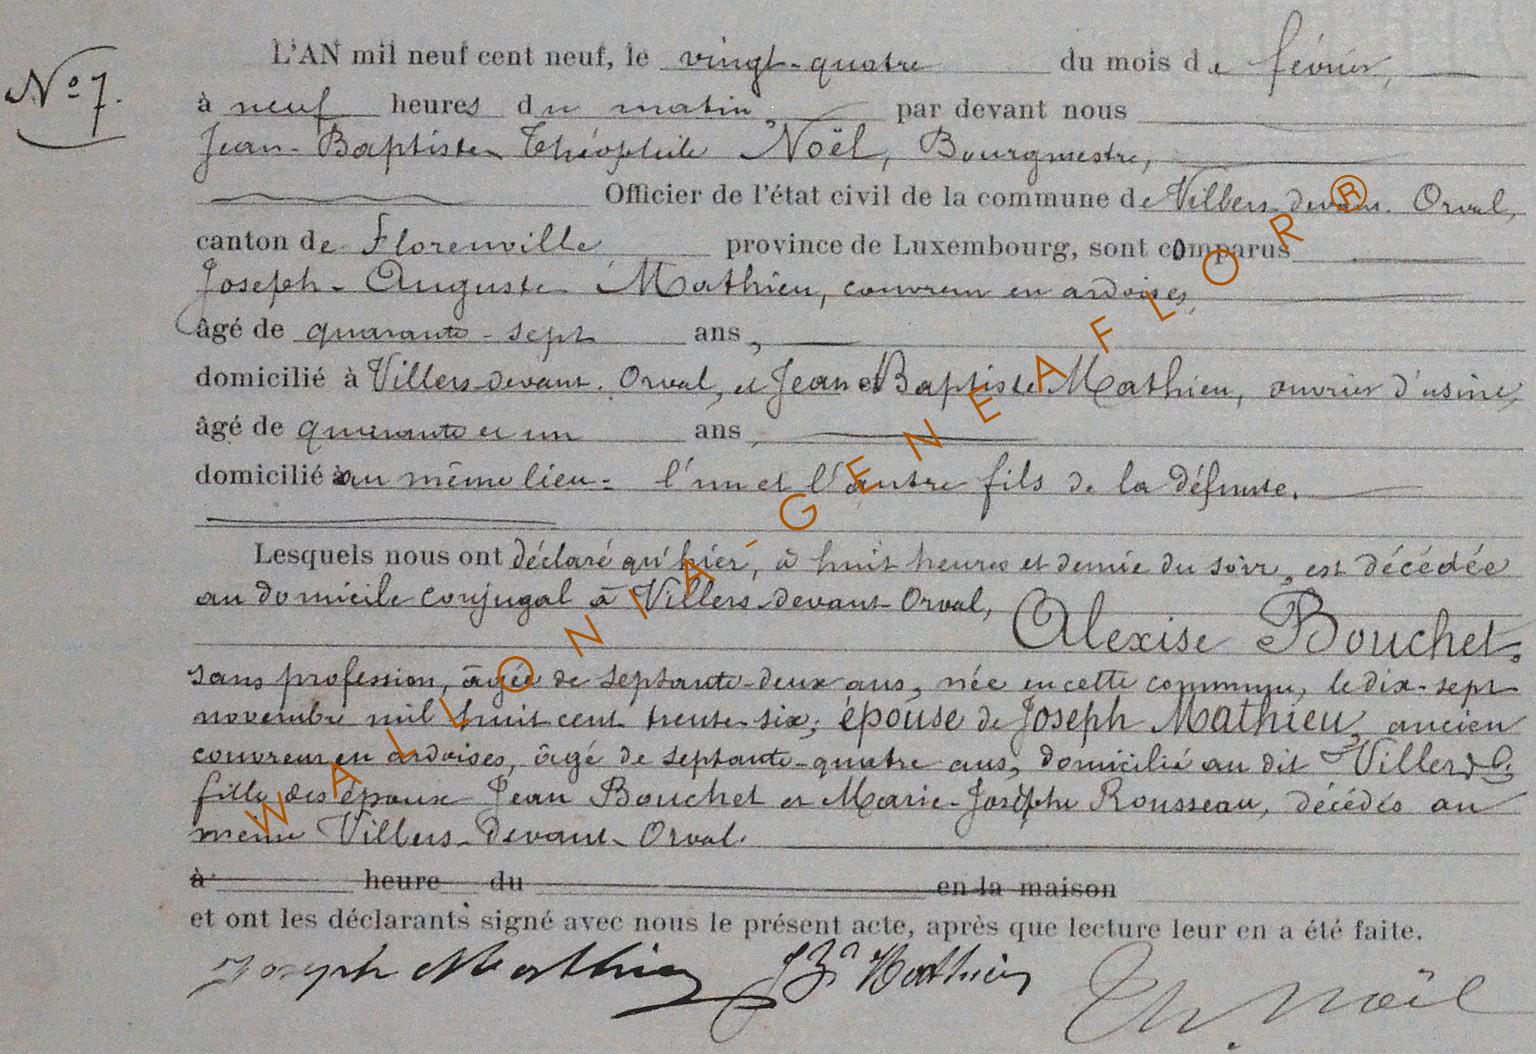 L'AN mil neuf cent neuf, le vingt-quatre du mois de février,
N° 7.
à neuf heures du matin, par devant nous
Jean-Baptiste Théophile Noël, Bourgmestre,
Officier de l'état civil de la commune de Villers-devant-Orval,
canton de Florenville province de Luxembourg, sont comparus
Joseph-Auguste Mathieu, couvreur en ardoises,
âgé de quarante-sept ans,
domicilié à Villers-devant-Orval, et Jean Baptiste Mathieu, ouvrier d'usine,
âgé de quarante et un ans,
domicilié au même lieu - l'un et l'autre fils de la défunte.
Lesquels nous ont déclaré qu'hier, à huit heures et demie du soir, est décédée
au domicile conjugal à Villers-devant-Orval, Alexise Bouchet,
sans profession, âgée de septante-deux ans, née en cette commune, le dix-sept
novembre mil huit cent trente-six; épouse de Joseph Mathieu, ancien
couvreur en ardoises, âgé de septante-quatre ans, domicilié au dit Villers
fille des époux Jean Bouchet et Marie-Josèphe Rousseau, décédés au
même Villers-devant-Orval.
à heure du en la maison
et ont les déclarants signé avec nous le présent acte, après que lecture leur en a été faite.
Joseph Mathieu JBte Mathieu Th. Noël
WALLONIA-GENEAFLOR®